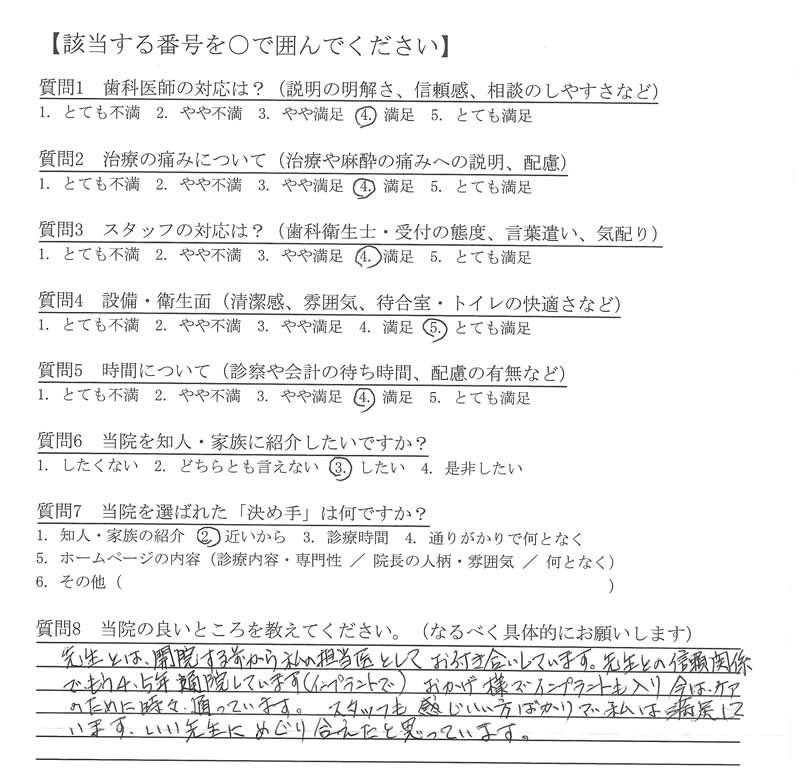 【該当する番号を○で囲んでください】
質問1 歯科医師の対応は?(説明の明解さ、信頼感、相談のしやすさなど)
1. とても不満 2. やや不満 3. やや満足 4. 満足 5. とても満足
質問2 治療の痛みについて(治療や麻酔の痛みへの説明、配慮)
1. とても不満 2. やや不満 3. やや満足 4. 満足 5. とても満足
質問3 スタッフの対応は?(歯科衛生士・受付の態度、言葉遣い、気配り)
1. とても不満 2. やや不満 3. やや満足 4. 満足 5. とても満足
質問4 設備・衛生面(清潔感、雰囲気、待合室・トイレの快適さなど)
1. とても不満 2. やや不満 3. やや満足 4. 満足 5. とても満足
質問5 時間について(診察や会計の待ち時間、配慮の有無など)
1. とても不満 2. やや不満 3. やや満足 4. 満足 5. とても満足
質問6 当院を知人・家族に紹介したいですか?
1. したくない 2. どちらとも言えない 3. したい 4. 是非したい
質問7 当院を選ばれた「決め手」は何ですか?
1. 知人・家族の紹介 2. 近いから 3. 診療時間 4. 通りがかりで何となく
5. ホームページの内容(診療内容・専門性 / 院長の人柄・雰囲気 / 何となく)
6. その他( )
質問8 当院の良いところを教えてください。(なるべく具体的にお願いします)
先生とは、開院する前から私の担当医としてお付き合いしています。先生との信頼関係
でもう4、5年通院しています(インプラントで) おかげ様でインプラントも入り今はケア
のために時々、通っています。 スタッフも感じいい方ばかりで私は満足して
います、いい先生にめぐり合えたと思っています。